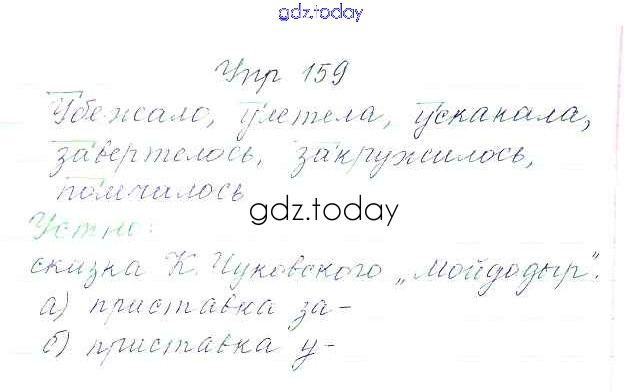 gdz.today
Упр 159
Убежало, улетела, ускакала,
завертелось, закружилось,
помчалось
gdz.today
Устно:
сказка К. Чуковского „Мойдодыр".
а) приставка за-
б) приставка у-